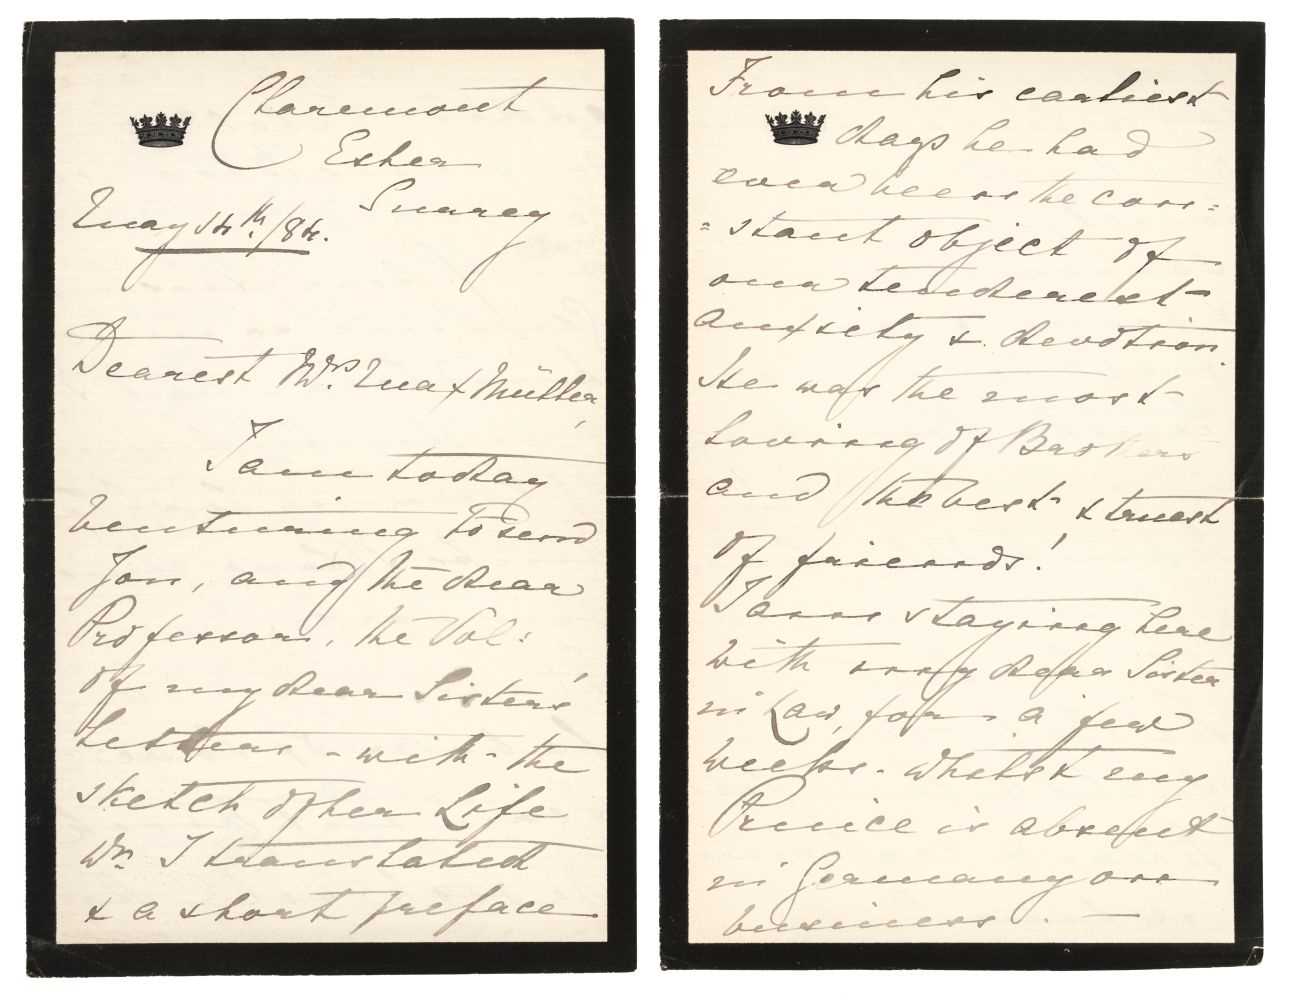 Claremont
Esher
Surrey
May 14th/84.
Dearest Mrs Max Müller,
I am today
venturing to send
You, and the dear
Professor, the Vol:
of my dear Sister's
Letters - with - the
sketch of her Life
wh. I translated
& a short preface
From his earliest
days he had
ever been the con=
=stant object of
our tenderest
anxiety & devotion.
He was the most
loving of Brothers
and the best & truest
of friends!
I am staying here
with my dear Sister
in Law, for a few
weeks - whilst my
Prince is absent
in Germany on
business. —